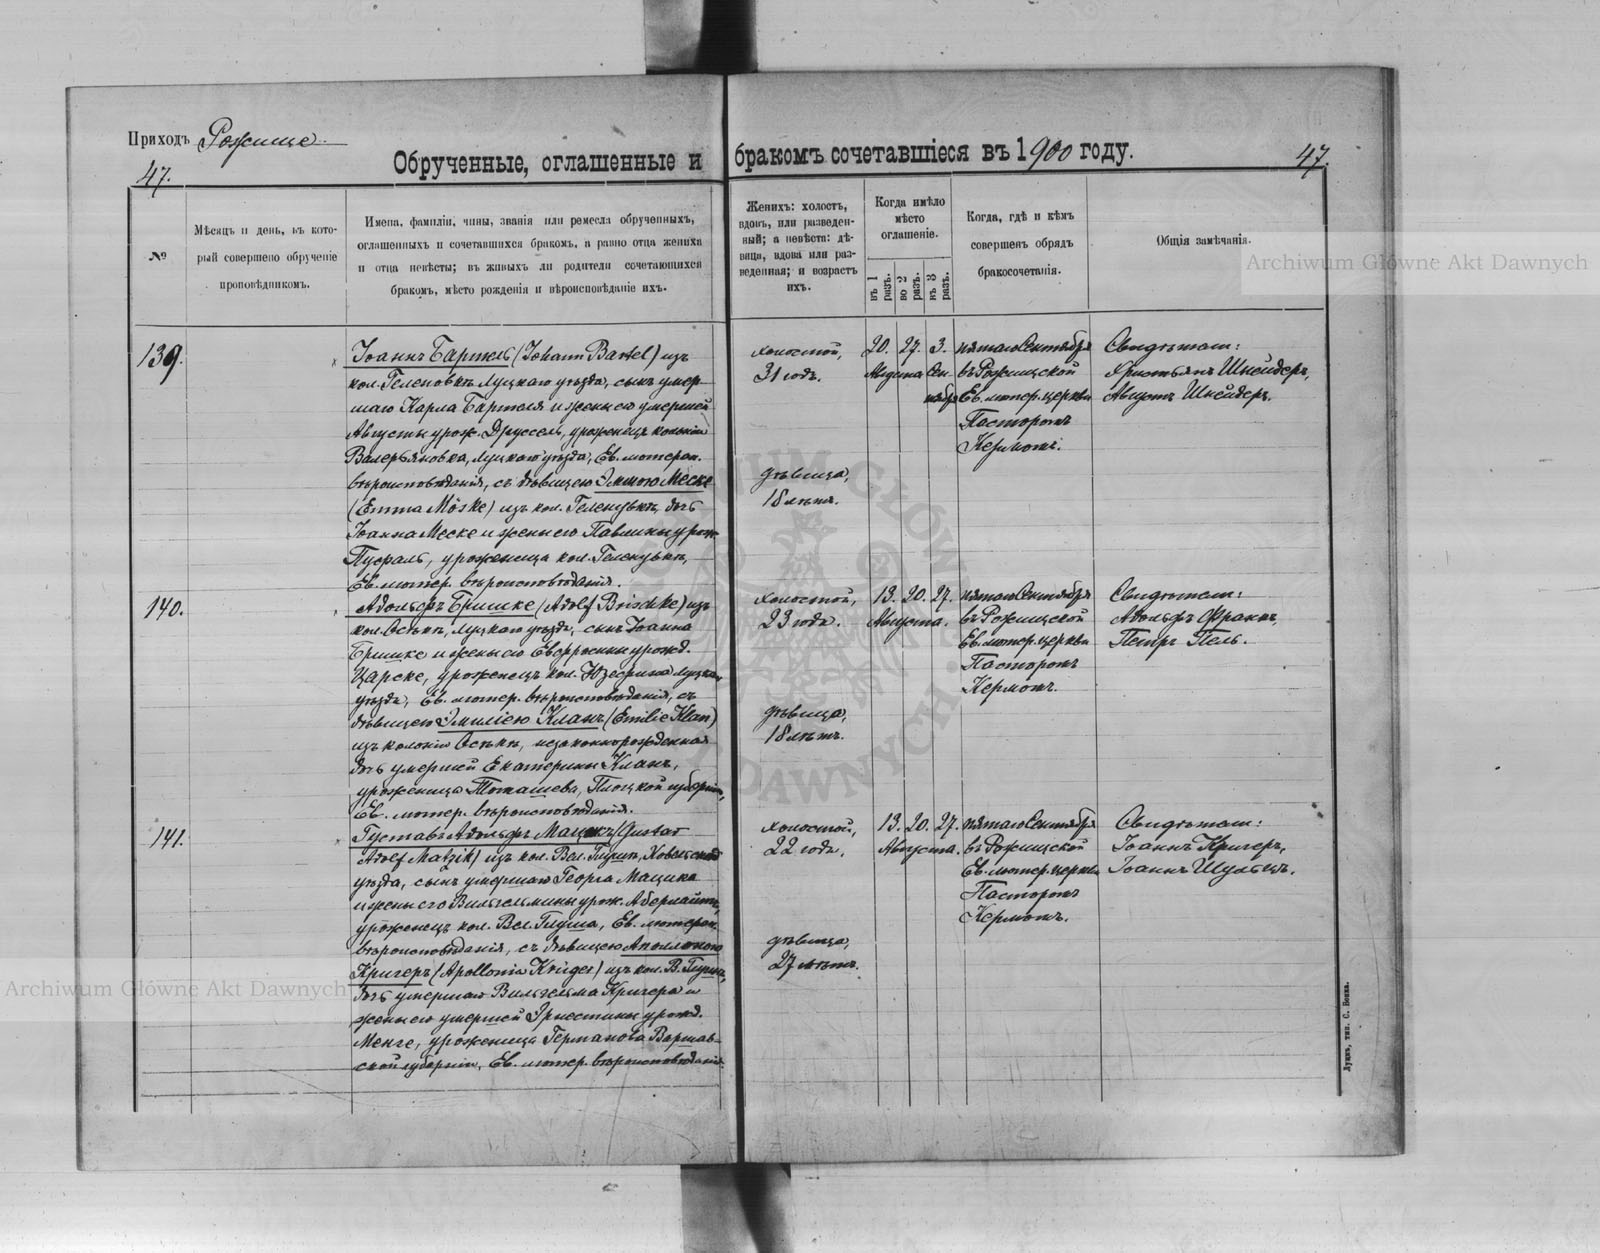 Приходъ Рожище.
47.
Обрученные, оглашенные и бракомъ сочетавшіеся въ 1900 году.
47.
№
Мѣсяцъ и день, въ кото-
рый совершено обрученіе
проповѣдникомъ.
Имена, фамиліи, чины, званія или ремесла обрученныхъ,
оглашенныхъ и сочетавшихся бракомъ, а равно отца жениха
и отца невѣсты; въ живыхъ ли родители сочетающихся
бракомъ, мѣсто рожденія и вѣроисповѣданіе ихъ.
Женихъ: холостъ,
вдовъ, или разведен-
ный; а невѣста: дѣ-
вица, вдова или раз-
веденная; и возрастъ
ихъ.
Когда имѣло
мѣсто
оглашеніе.
въ 1 разъ.
во 2 разъ.
въ 3 разъ.
Когда, гдѣ и кѣмъ
совершенъ обрядъ
бракосочетанія.
Общія замѣчанія.
139.
Іоаннъ Бартель (Johann Bartel) изъ
кол. Геленовкъ Луцкаго уѣзда, сынъ умер-
шаго Карла Бартеля и жены его умершей
Августы урож. Друссель, уроженецъ колоніи
Валерьяновка, Луцкаго уѣзда, Ев. лютеран.
вѣроисповѣданія, съ дѣвицею Эммою Меске
(Emma Möske) изъ кол. дочь
Іоанна Меске и жены его Павлины урож.
Пуфаль, уроженица кол.
Ев. лютер. вѣроисповѣданія.
холостой,
31 годъ.
дѣвица,
18 лѣтъ.
20. 27. 3.
Августа Сен
тября
пятаго Сентября
въ Рожищской
Ев. лютер. церкви
Пасторомъ
Кермомъ.
Свидѣтели:
Христьянъ Шнейдеръ,
Августъ Шнейдеръ.
140.
Адольфъ Бришке (Adolf Brischke) изъ
кол. Осѣкъ, Луцкаго уѣзда, сынъ Іоанна
Бришке и жены его Евфрозины урожд.
Царске, уроженецъ кол. Юзефина Луцкаго
уѣзда, Ев. лютер. вѣроисповѣданія, съ
дѣвицею Эмиліею Кланъ (Emilie Klan)
изъ колоніи Осѣкъ, незаконнорожденная
дочь умершей Екатерины Кланъ,
уроженица Плоцкой губерніи,
Ев. лютер. вѣроисповѣданія.
холостой,
23 года.
дѣвица,
18 лѣтъ.
13. 20. 27.
Августа.
пятаго Сентября
въ Рожищской
Ев. лютер. церкви
Пасторомъ
Кермомъ.
Свидѣтели:
Адольфъ Франкъ,
Петръ Пель.
141.
Густавъ Адольфъ Мацикъ (Gustav
Adolf Matzik) изъ кол. Вел. Глуша, Ковельскаго
уѣзда, сынъ умершаго Георга Мацика
и жены его Вильгельмины урож.
уроженецъ кол. Вел. Глуша, Ев. лютеран.
вѣроисповѣданія, съ дѣвицею Аполлоніею
Кригеръ (Apollonia Krüger) изъ кол. В. Глуша,
дочь умершаго Вильгельма Кригера и
жены его умершей Эрнестины урожд.
Менге, уроженица Германова Варшав-
ской губерніи, Ев. лютер. вѣроисповѣданія.
холостой,
22 года.
дѣвица,
27 лѣтъ.
13. 20. 27.
Августа.
пятаго Сентября
въ Рожищской
Ев. лютер. церкви
Пасторомъ
Кермомъ.
Свидѣтели:
Іоаннъ Кригеръ,
Іоаннъ Шульцъ.
Луцкъ, тип. С. Бонка.
Archiwum Główne Akt Dawnych
Archiwum Główne Akt Dawnych